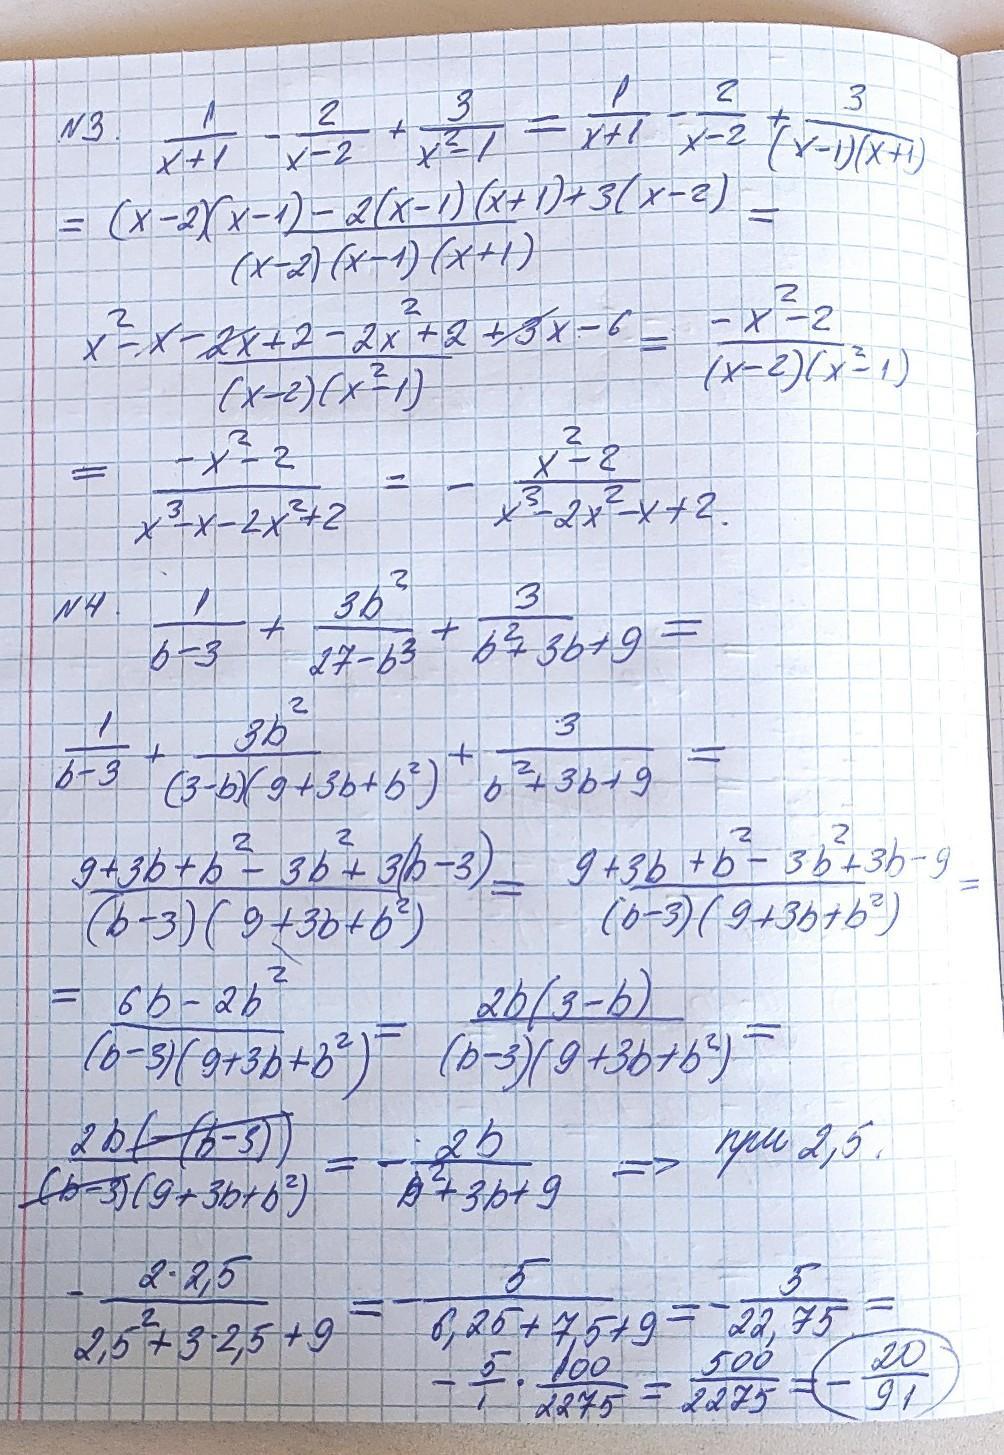 N3. 1/(x+1) - 2/(x-2) + 3/(x²-1) = 1/(x+1) - 2/(x-2) + 3/((x-1)(x+1))
= ((x-2)(x-1) - 2(x-1)(x+1) + 3(x-2))/((x-2)(x-1)(x+1)) =
(x² - x - 2x + 2 - 2x² + 2 + 3x - 6)/((x-2)(x²-1)) = (-x²-2)/((x-2)(x²-1))
= (-x²-2)/(x³-x-2x²+2) = - (x²-2)/(x³-2x²-x+2).
N4. 1/(b-3) + 3b²/(27-b³) + 3/(b²+3b+9) =
1/(b-3) + 3b²/((3-b)(9+3b+b²)) + 3/(b²+3b+9) =
(9+3b+b²-3b²+3(b-3))/((b-3)(9+3b+b²)) = (9+3b+b²-3b²+3b-9)/((b-3)(9+3b+b²)) =
= (6b-2b²)/((b-3)(9+3b+b²)) = 2b(3-b)/((b-3)(9+3b+b²)) =
2b(-(b-3))/((b-3)(9+3b+b²)) = - 2b/(b²+3b+9) => при 2,5.
- (2·2,5)/(2,5²+3·2,5+9) = - 5/(6,25+7,5+9) = - 5/22,75 =
- 5/1 · 100/2275 = 500/2275 = - 20/91